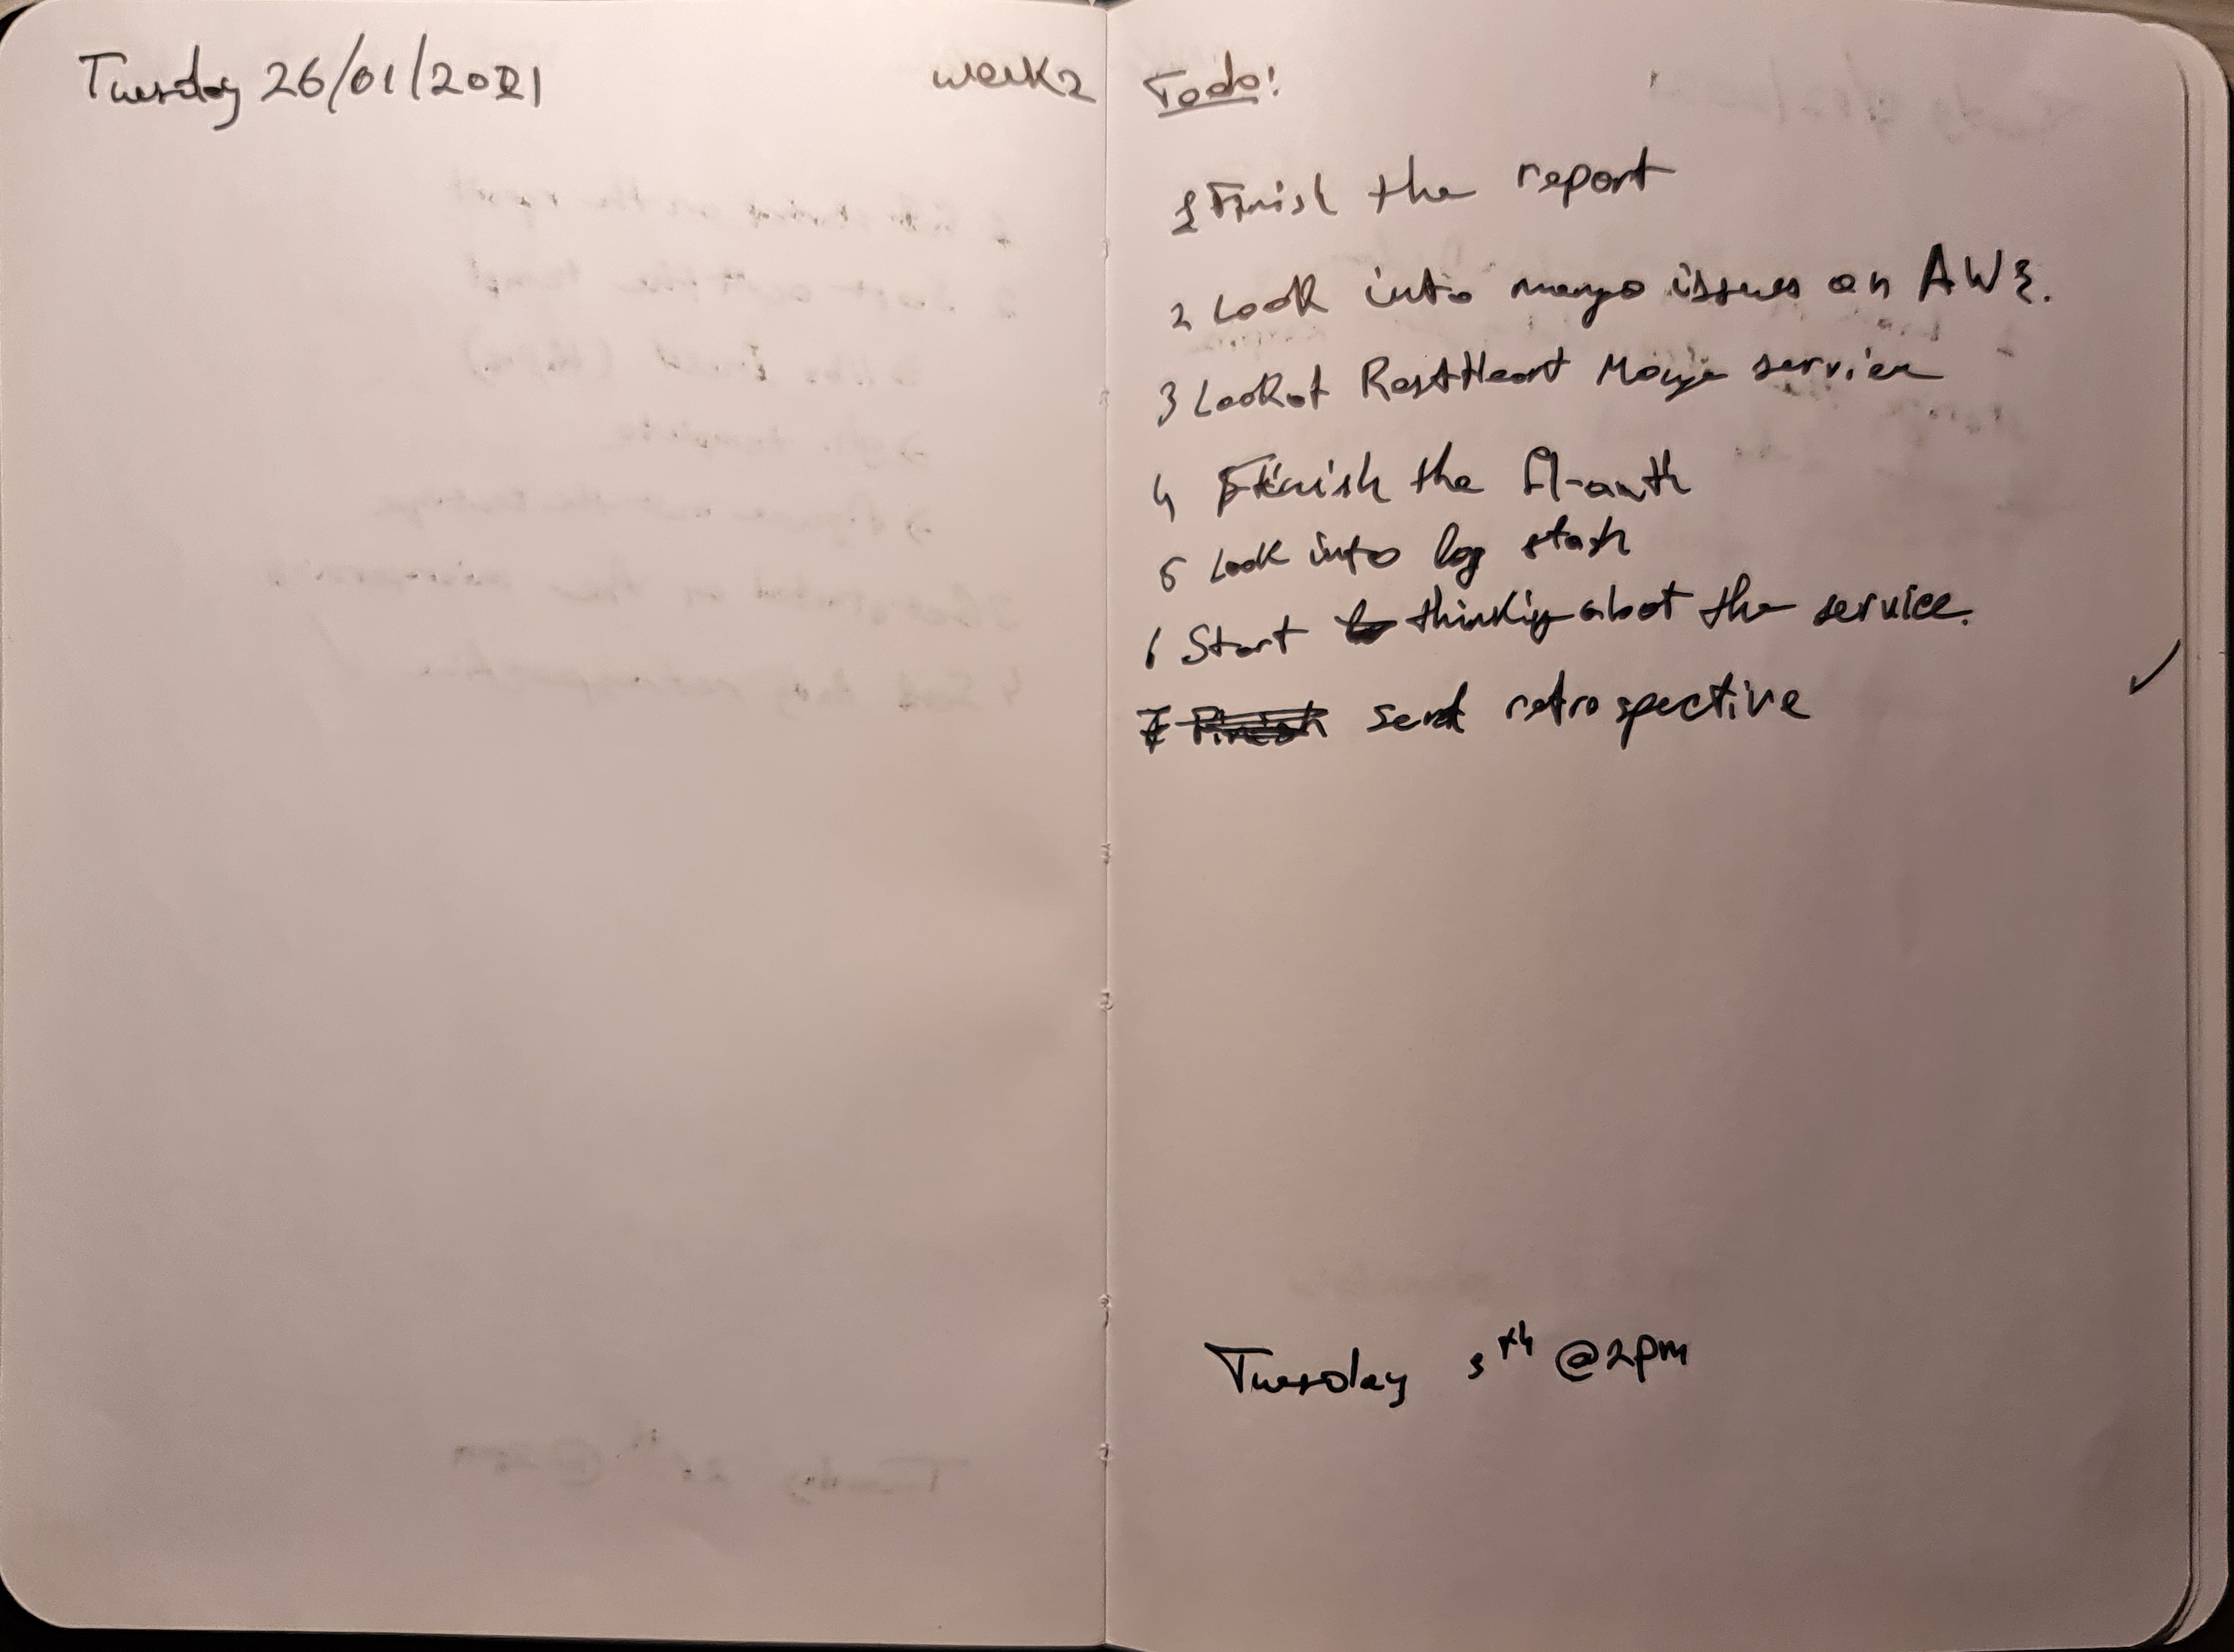 Tuesday 26/01/2021
week2
Todo!
1 Finish the report
2 Look into mongo issues on AWS.
3 Look at RestHeart Mongo service
4 Finish the FI-auth
5 Look into log stash
6 Start thinking about the service.
7 Finish send retrospective ✓
Tuesday th @2pm